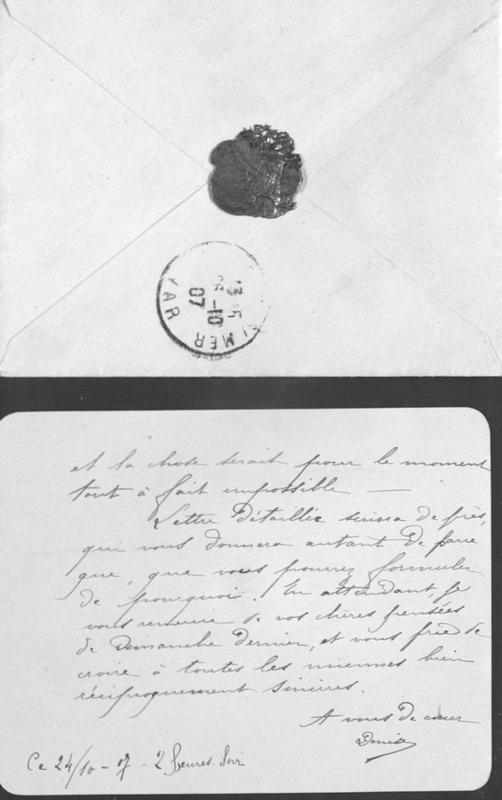 13-5
-10
07
MER
VAR
et la chose serait pour le moment
tout à fait impossible —
Lettre Détaillée suivra de près,
qui vous donnera autant de
que, que vous pourrez formuler
de pourquoi. En attendant, je
vous remercie de vos chères pensées
de Dimanche Dernier, et vous prie de
croire à toutes les miennes bien
réciproquement sincères.
A vous de cœur
Denise
Ce 24/10 - 07 - 2 heures soir